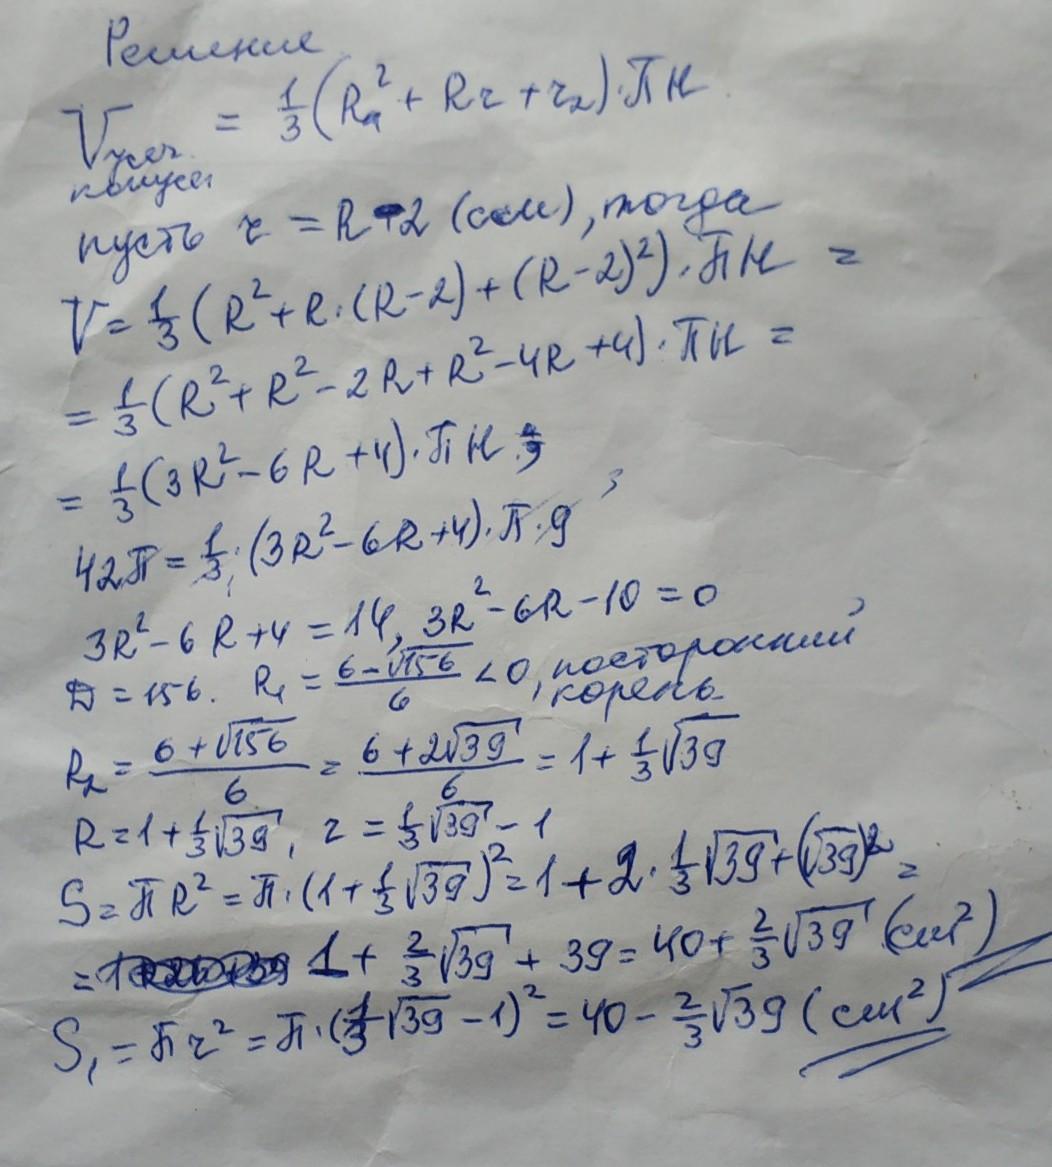 Решение
V усеч. конуса = 1/3 (R² + Rr + r₂) · ПН
пусть r = R - 2 (см), тогда
V = 1/3 (R² + R · (R - 2) + (R - 2)²) · ПН =
= 1/3 (R² + R² - 2R + R² - 4R + 4) · ПН =
= 1/3 (3R² - 6R + 4) · ПН
42П = 1/3 · (3R² - 6R + 4) · П · 9 3
3R² - 6R + 4 = 14, 3R² - 6R - 10 = 0
Д = 156. R₁ = (6 - √156)/6 < 0, посторонний корень
R₂ = (6 + √156)/6 = (6 + 2√39)/6 = 1 + 1/3 √39
R = 1 + 1/3 √39, r = 1/3 √39 - 1
S = ПR² = П · (1 + 1/3 √39)² = 1 + 2 · 1/3 √39 + (√39)² =
= 1 + 2/3 √39 + 39 = 40 + 2/3 √39 (см²)
S₁ = Пr² = П · (1/3 √39 - 1)² = 40 - 2/3 √39 (см²)